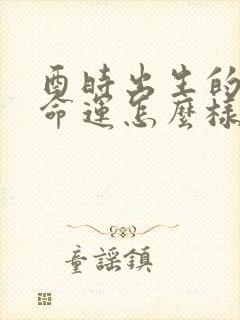 酉時出生的
命運怎麼樣
童謠鎮